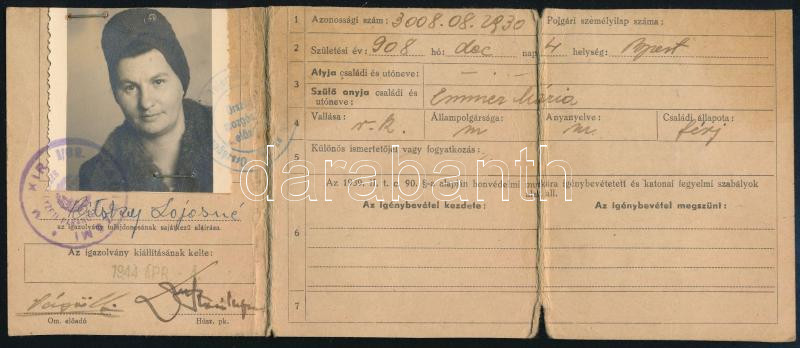 1 Azonossági szám: 3008.08.2930 Polgári személyilap száma:
2 Születési év: 908 hó: dec nap 4 helység: Bpest
3 Atyja családi és utóneve: — . —
Szülő anyja családi és utóneve: Emmer Mária
4 Vallása: r.k. Állampolgársága: m Anyanyelve: m. Családi állapota: férj
5 Különös ismertetőjei vagy fogyatkozás:
Az 1939. II. t. c. 90. §-a alapján honvédelmi munkára igénybevétetett és katonai fegyelmi szabályok alatt áll.
6 Az igénybevétel kezdete: Az igénybevétel megszünt:
7
Lajosné
az igazolvány tulajdonosának sajátkezű aláírása.
Az igazolvány kiállításának kelte:
1944 ÁPR
Om. előadó Hösz. pk.
darabanth